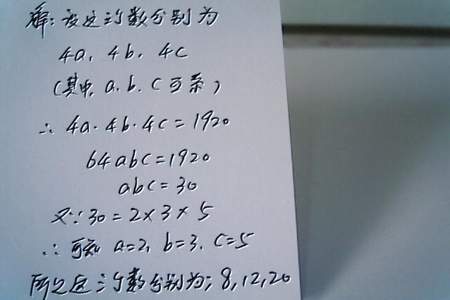 解:设这三个数分别为
4a, 4b, 4c
(其中, a, b, c 互素)
∴ 4a·4b·4c=1920
64abc=1920
abc=30
又∵30=2×3×5
∴ 可知 a=2, b=3, c=5
所以这三个数分别为: 8,12,20